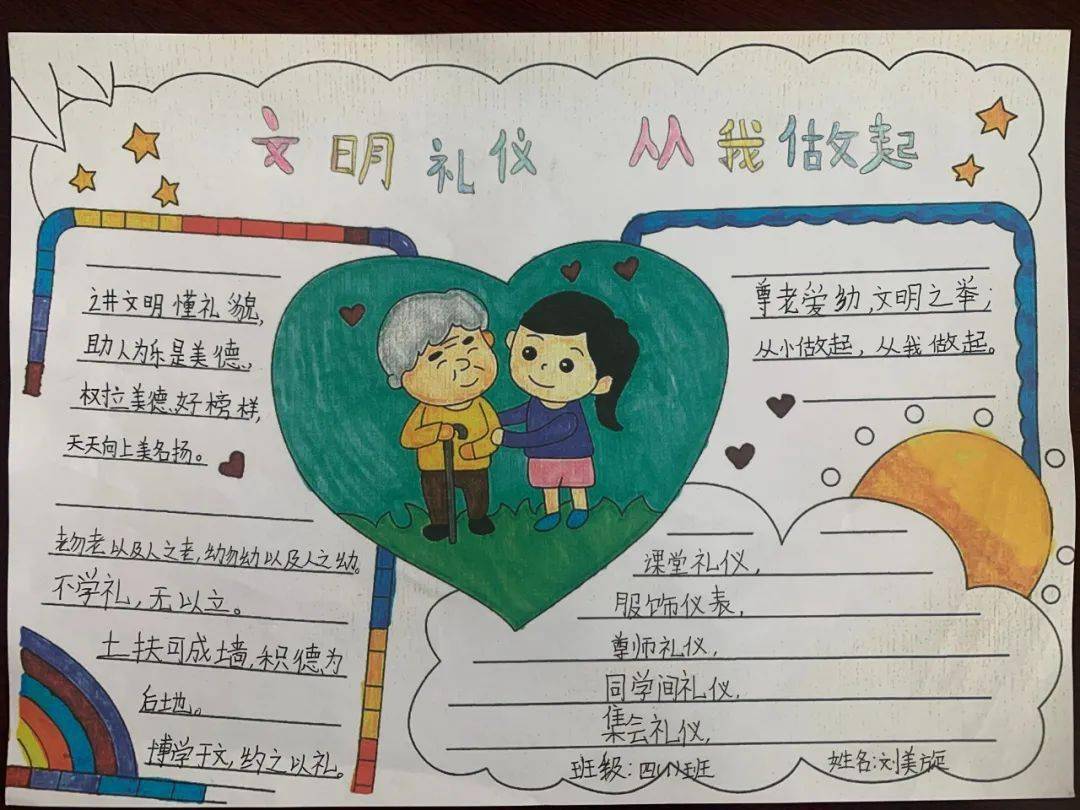 文明礼仪 从我做起
讲文明懂礼貌,
助人为乐是美德,
权拉美德、好榜样,
天天向上美名扬。
老勿老以及人之老,幼勿幼以及人之幼。
不学礼,无以立。
土扶可成墙,积德为
后地。
博学于文,约之以礼。
尊老爱幼,文明之举;
从小做起,从我做起。
课堂礼仪,
服饰仪表,
尊师礼仪,
同学间礼仪,
集会礼仪,
班级:四 班 姓名:刘美旋